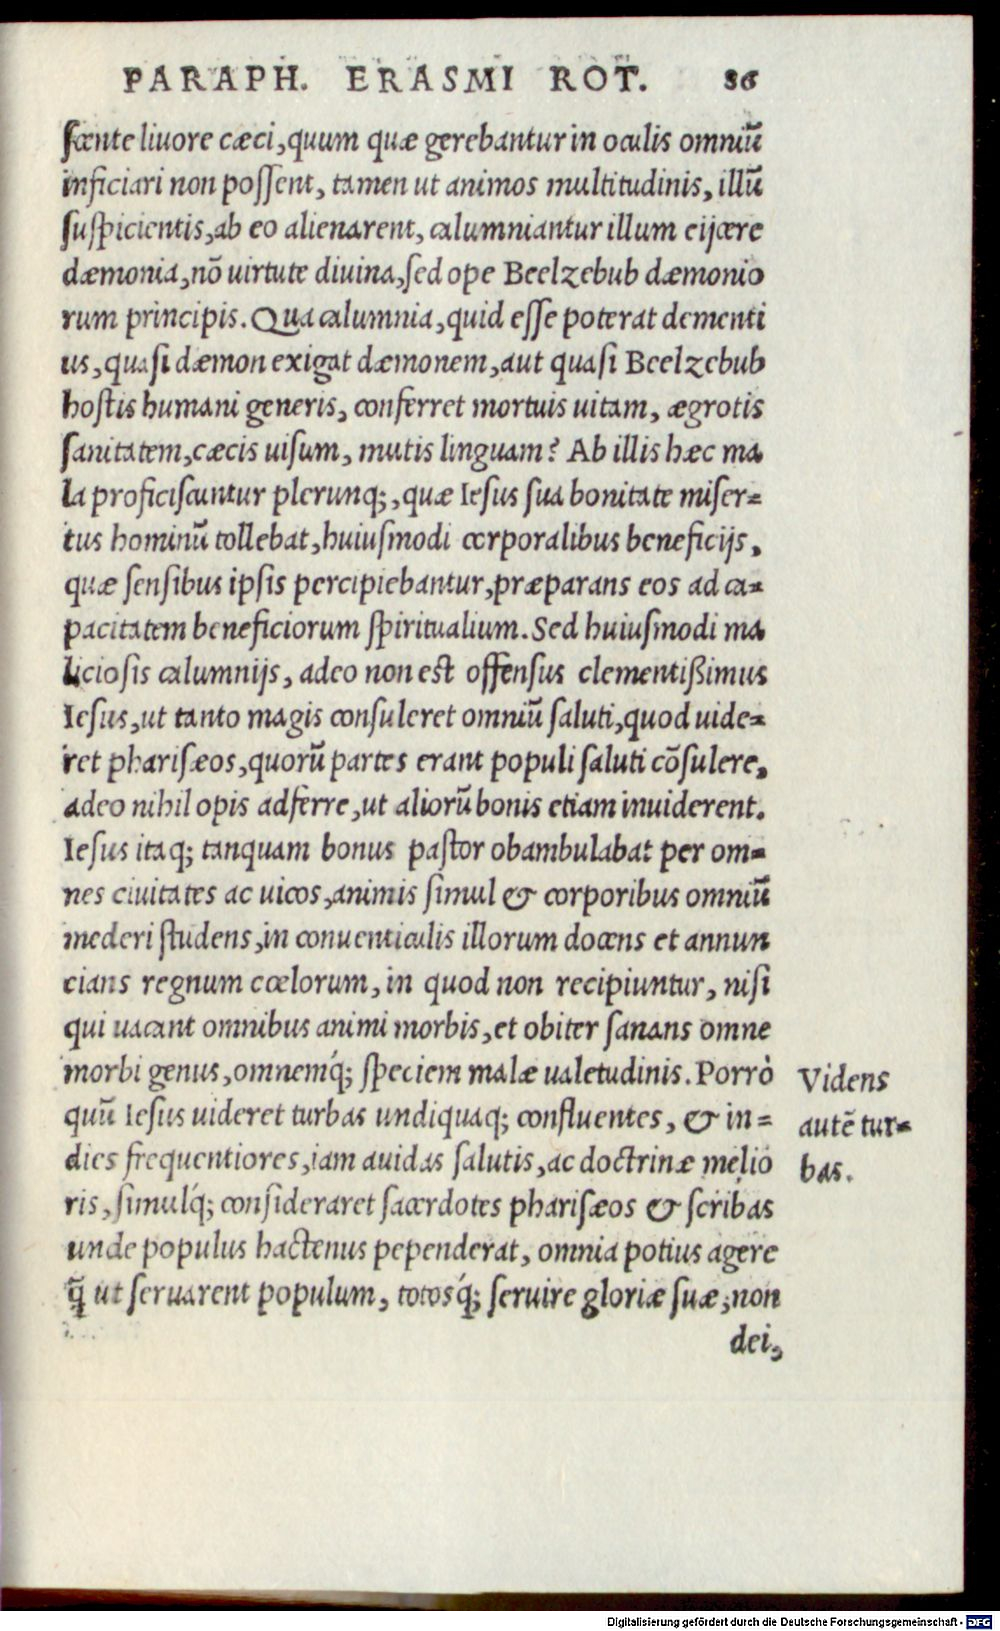 PARAPH. ERASMI ROT. 86
scente liuore cæci, quum quæ gerebantur in oculis omniū
inficiari non possent, tamen ut animos multitudinis, illū
suspicientis, ab eo alienarent, calumniantur illum eijcere
dæmonia, nō uirtute diuina, sed ope Beelzebub dæmonio
rum principis. Qua calumnia, quid esse poterat dementi
us, quasi dæmon exigat dæmonem, aut quasi Beelzebub
hostis humani generis, conferret mortuis uitam, ægrotis
sanitatem, cæcis uisum, mutis linguam? Ab illis hæc ma
la proficiscuntur plerunq;, quæ Iesus sua bonitate miser=
tus hominū tollebat, huiusmodi corporalibus beneficijs,
quæ sensibus ipsis percipiebantur, præparans eos ad ca=
pacitatem beneficiorum spiritualium. Sed huiusmodi ma
liciosis calumnijs, adeo non est offensus clementißimus
Iesus, ut tanto magis consuleret omniū saluti, quod uide=
ret pharisæos, quorū partes erant populi saluti cōsulere,
adeo nihil opis adferre, ut aliorū bonis etiam inuiderent.
Iesus itaq; tanquam bonus pastor obambulabat per om=
nes ciuitates ac uicos, animis simul & corporibus omniū
mederi studens, in conuenticulis illorum docens et annun
cians regnum cœlorum, in quod non recipiuntur, nisi
qui uacant omnibus animi morbis, et obiter sanans omne
morbi genus, omnemq́; speciem malæ ualetudinis. Porrò
quū Iesus uideret turbas undiquaq; confluentes, & in=
dies frequentiores, iam auidas salutis, ac doctrinæ melio
ris, simulq́; consideraret sacerdotes pharisæos & scribas
unde populus hactenus pependerat, omnia potius agere
q̃ ut seruarent populum, totosq́; seruire gloriæ suæ, non
dei,
Videns
autē tur=
bas.
Digitalisierung gefördert durch die Deutsche Forschungsgemeinschaft - DFG